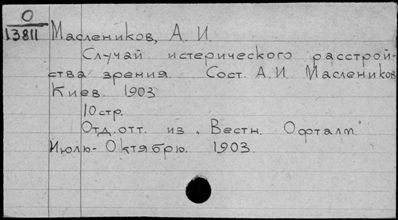 О
13811
Маслеников, А. И.
Случай истерического расстрой-
ства зрения. Сост. А. И. Маслеников
Киев. 1903
10 стр.
Отд. отт. из „Вестн. Офталм."
Июлю-Октябрю. 1903.